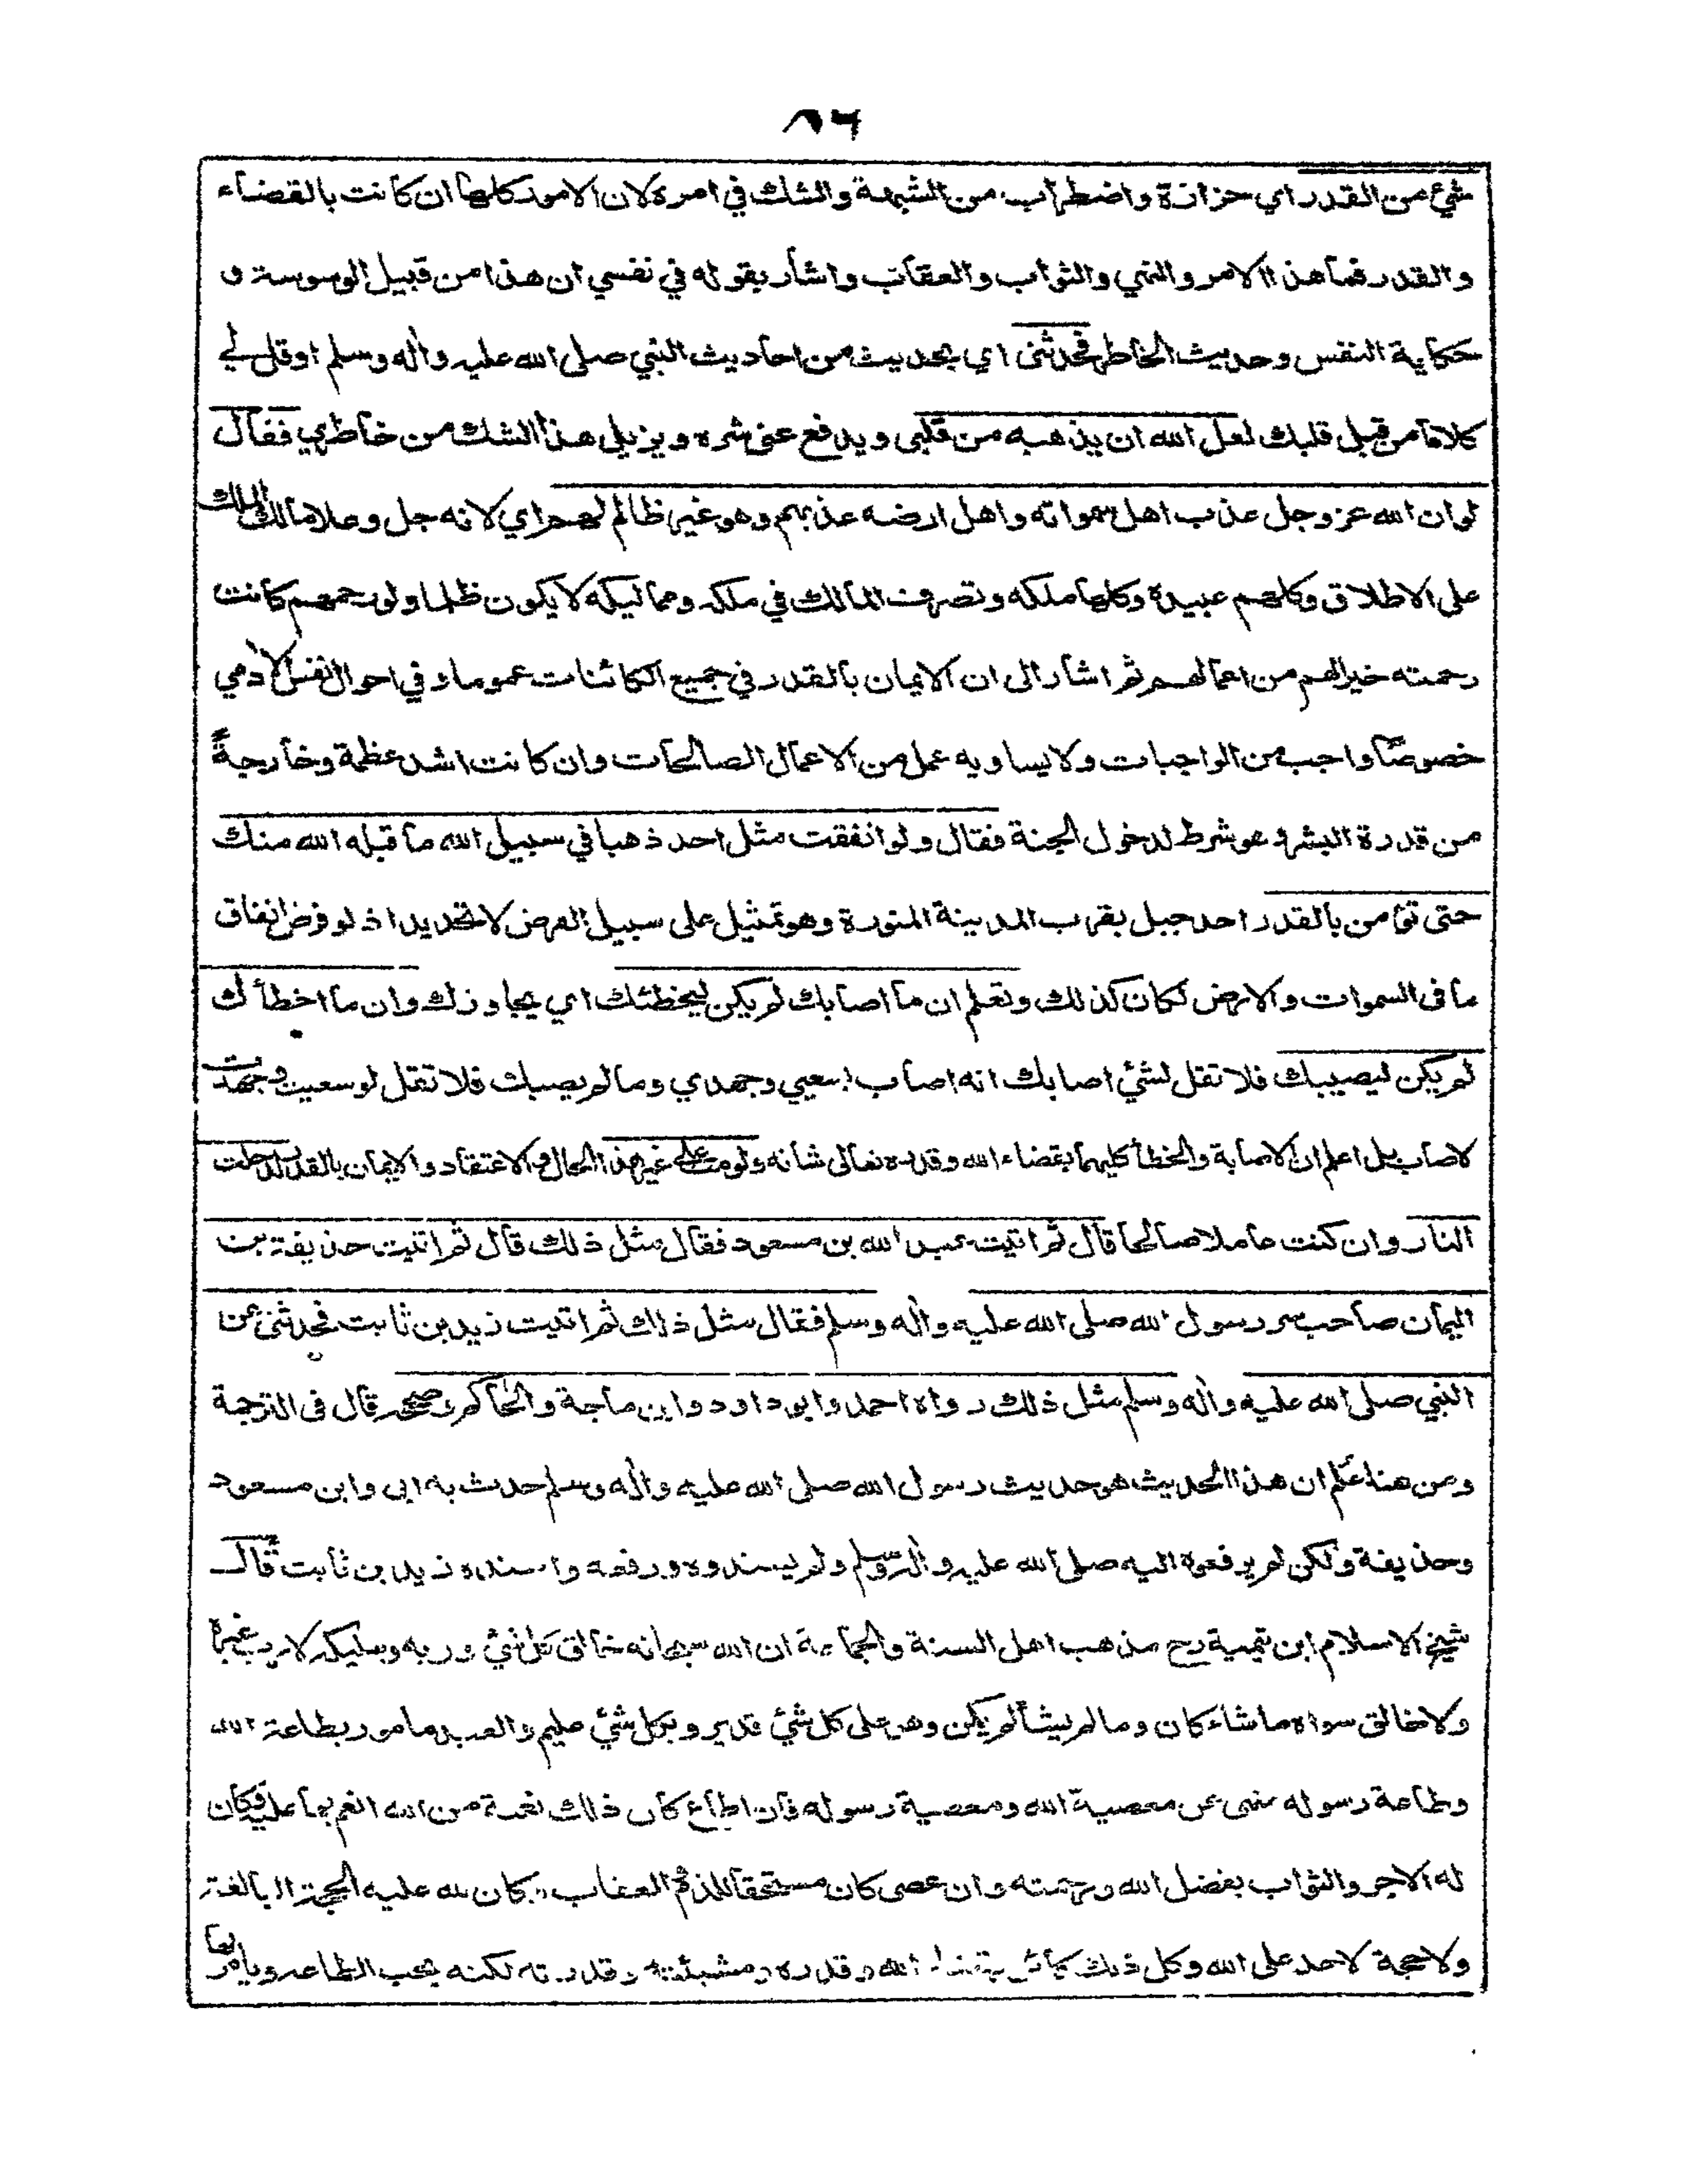 ٨٦
شئ من القدر اي حزازة واضطراب من الشبهة والشك في امره لان الامور كلها ان كانت بالقضاء
والقدر فما هذا الامر والنهي والثواب والعقاب واشار بقوله في نفسي ان هذا من قبيل الوسوسة و
حكاية النفس وحديث الخاطر فحدثنى اي بحديث من احاديث النبي صلى الله عليه واله وسلم او قل لي
كلاما من قبل قلبك لعل الله ان يذهبه من قلبى ويدفع عنى شره ويزيل هذا الشك من خاطري فقال
لو ان الله عز وجل عذب اهل سمواته واهل ارضه عذبهم وهو غير ظالم لهم اي لانه جل وعلا مالك الملك
على الاطلاق وكلهم عبيده وكلها ملكه وتصرف المالك في ملكه ومماليكه لا يكون ظلما ولو رحمهم كانت
رحمته خيرا لهم من اعمالهم ثم اشار الى ان الايمان بالقدر في جميع الكائنات عموما و في احوال النفس الآدمي
خصوصا واجب من الواجبات ولا يساويه عمل من الاعمال الصالحات وان كانت اشد عظمة وخارجة
من قدرة البشر و هو شرط لدخول الجنة فقال ولو انفقت مثل احد ذهبا في سبيل الله ما قبله الله منك
حتى تؤمن بالقدر احد جبل بقرب المدينة المنورة وهو تمثيل على سبيل الفرض لا تحديد اذ لو فرض انفاق
ما فى السموات والارض لكان كذلك وتعلم ان ما اصابك لم يكن ليخطئك اي يجاوزك وان ما اخطأك
لم يكن ليصيبك فلا تقل لشئ اصابك انه اصاب بسعيي وجهدي وما لم يصبك فلا تقل لو سعيت وجهدت
لاصاب بل اعلم ان الاصابة والخطأ كليهما بقضاء الله وقدره تعالى شانه ولو مت على غير هذا الحال والاعتقاد والايمان بالقدر لدخلت
النار وان كنت عاملا صالحا قال ثم اتيت عبد الله بن مسعود فقال مثل ذلك قال ثم اتيت حذيفة بن
اليمان صاحب سر رسول الله صلى الله عليه واله وسلم فقال مثل ذلك ثم اتيت زيد بن ثابت فحدثنى عن
النبي صلى الله عليه واله وسلم مثل ذلك رواه احمد وابو داود وابن ماجة والحاكم وصححه قال فى الترجمة
ومن هنا علم ان هذا الحديث هو حديث رسول الله صلى الله عليه واله وسلم حدث به ابى وابن مسعود
وحذيفة ولكن لم يرفعوه اليه صلى الله عليه واله وسلم ولم يسندوه ورفعه واسنده زيد بن ثابت قال
شيخ الاسلام ابن تيمية رح مذهب اهل السنة والجماعة ان الله سبحانه خالق كل شئ وربه ومليكه لا رب غيره
ولا خالق سواه ما شاء كان وما لم يشأ لم يكن وهو على كل شئ قدير وبكل شئ عليم والعبد مامور بطاعة الله
وطاعة رسوله منهى عن معصية الله ومعصية رسوله فان اطاع كان ذلك نعمة من الله انعم بها عليه فكان
له الاجر والثواب بفضل الله ورحمته وان عصى كان مستحقا للذم والعقاب وكان لله عليه الحجة البالغة
ولا حجة لاحد على الله وكل ذلك كائن بقضاء الله وقدره ومشيئته وقدرته لكنه يحب الطاعة ويامر بها